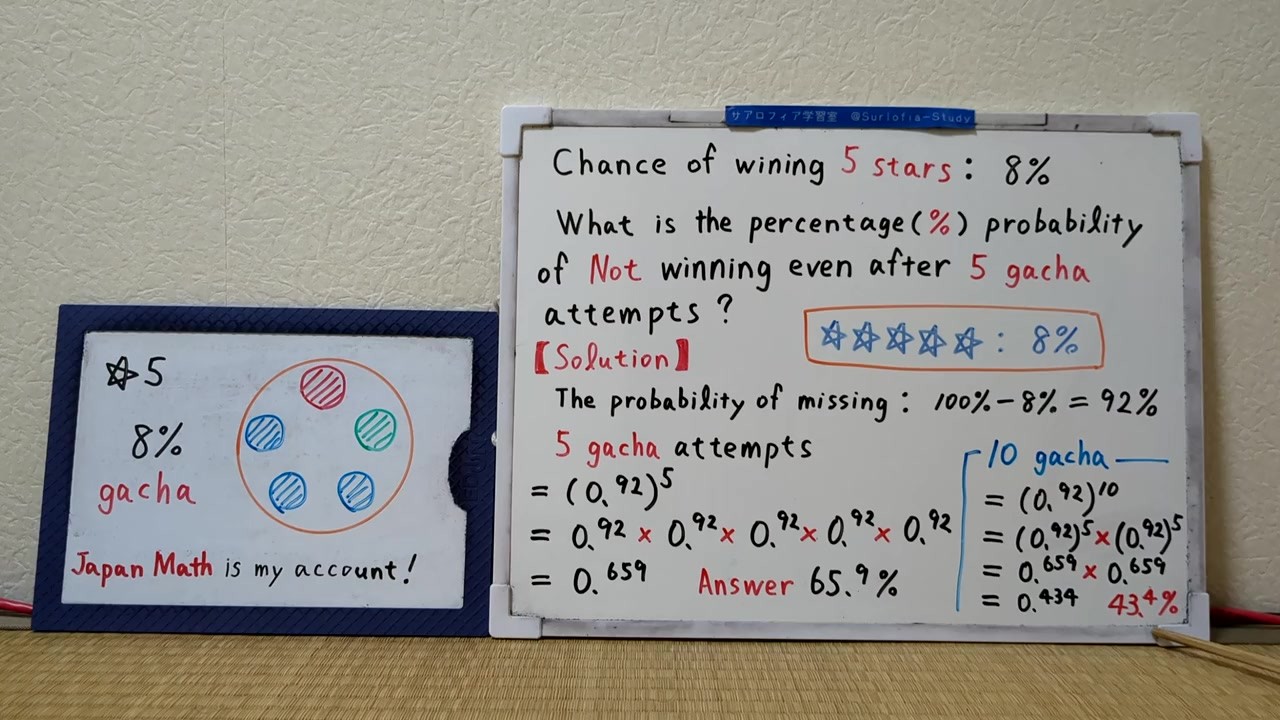 サアロフィア学習室 @Surlofia-Study
Chance of wining 5 stars : 8%
What is the percentage(%) probability
of Not winning even after 5 gacha
attempts ?
☆☆☆☆☆ : 8%
【Solution】
The probability of missing : 100%-8% = 92%
5 gacha attempts
= (0.92)⁵
= 0.92 × 0.92 × 0.92 × 0.92 × 0.92
= 0.659 Answer 65.9%
10 gacha
= (0.92)¹⁰
= (0.92)⁵×(0.92)⁵
= 0.659 × 0.659
= 0.434 43.4%
☆5
8%
gacha
Japan Math is my account!